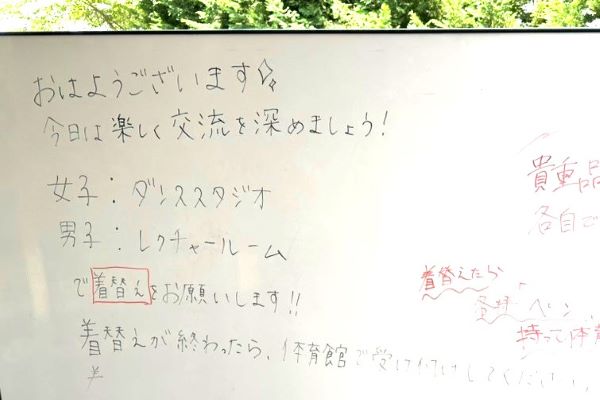 おはようございます☆
今日は楽しく交流を深めましょう!
女子:ダンススタジオ
男子:レクチャールーム
で着替えをお願いします!!
着替えが終わったら、体育館で受け付けしてください。
貴重品
各自で
着替えたら
ペン、
持って体育